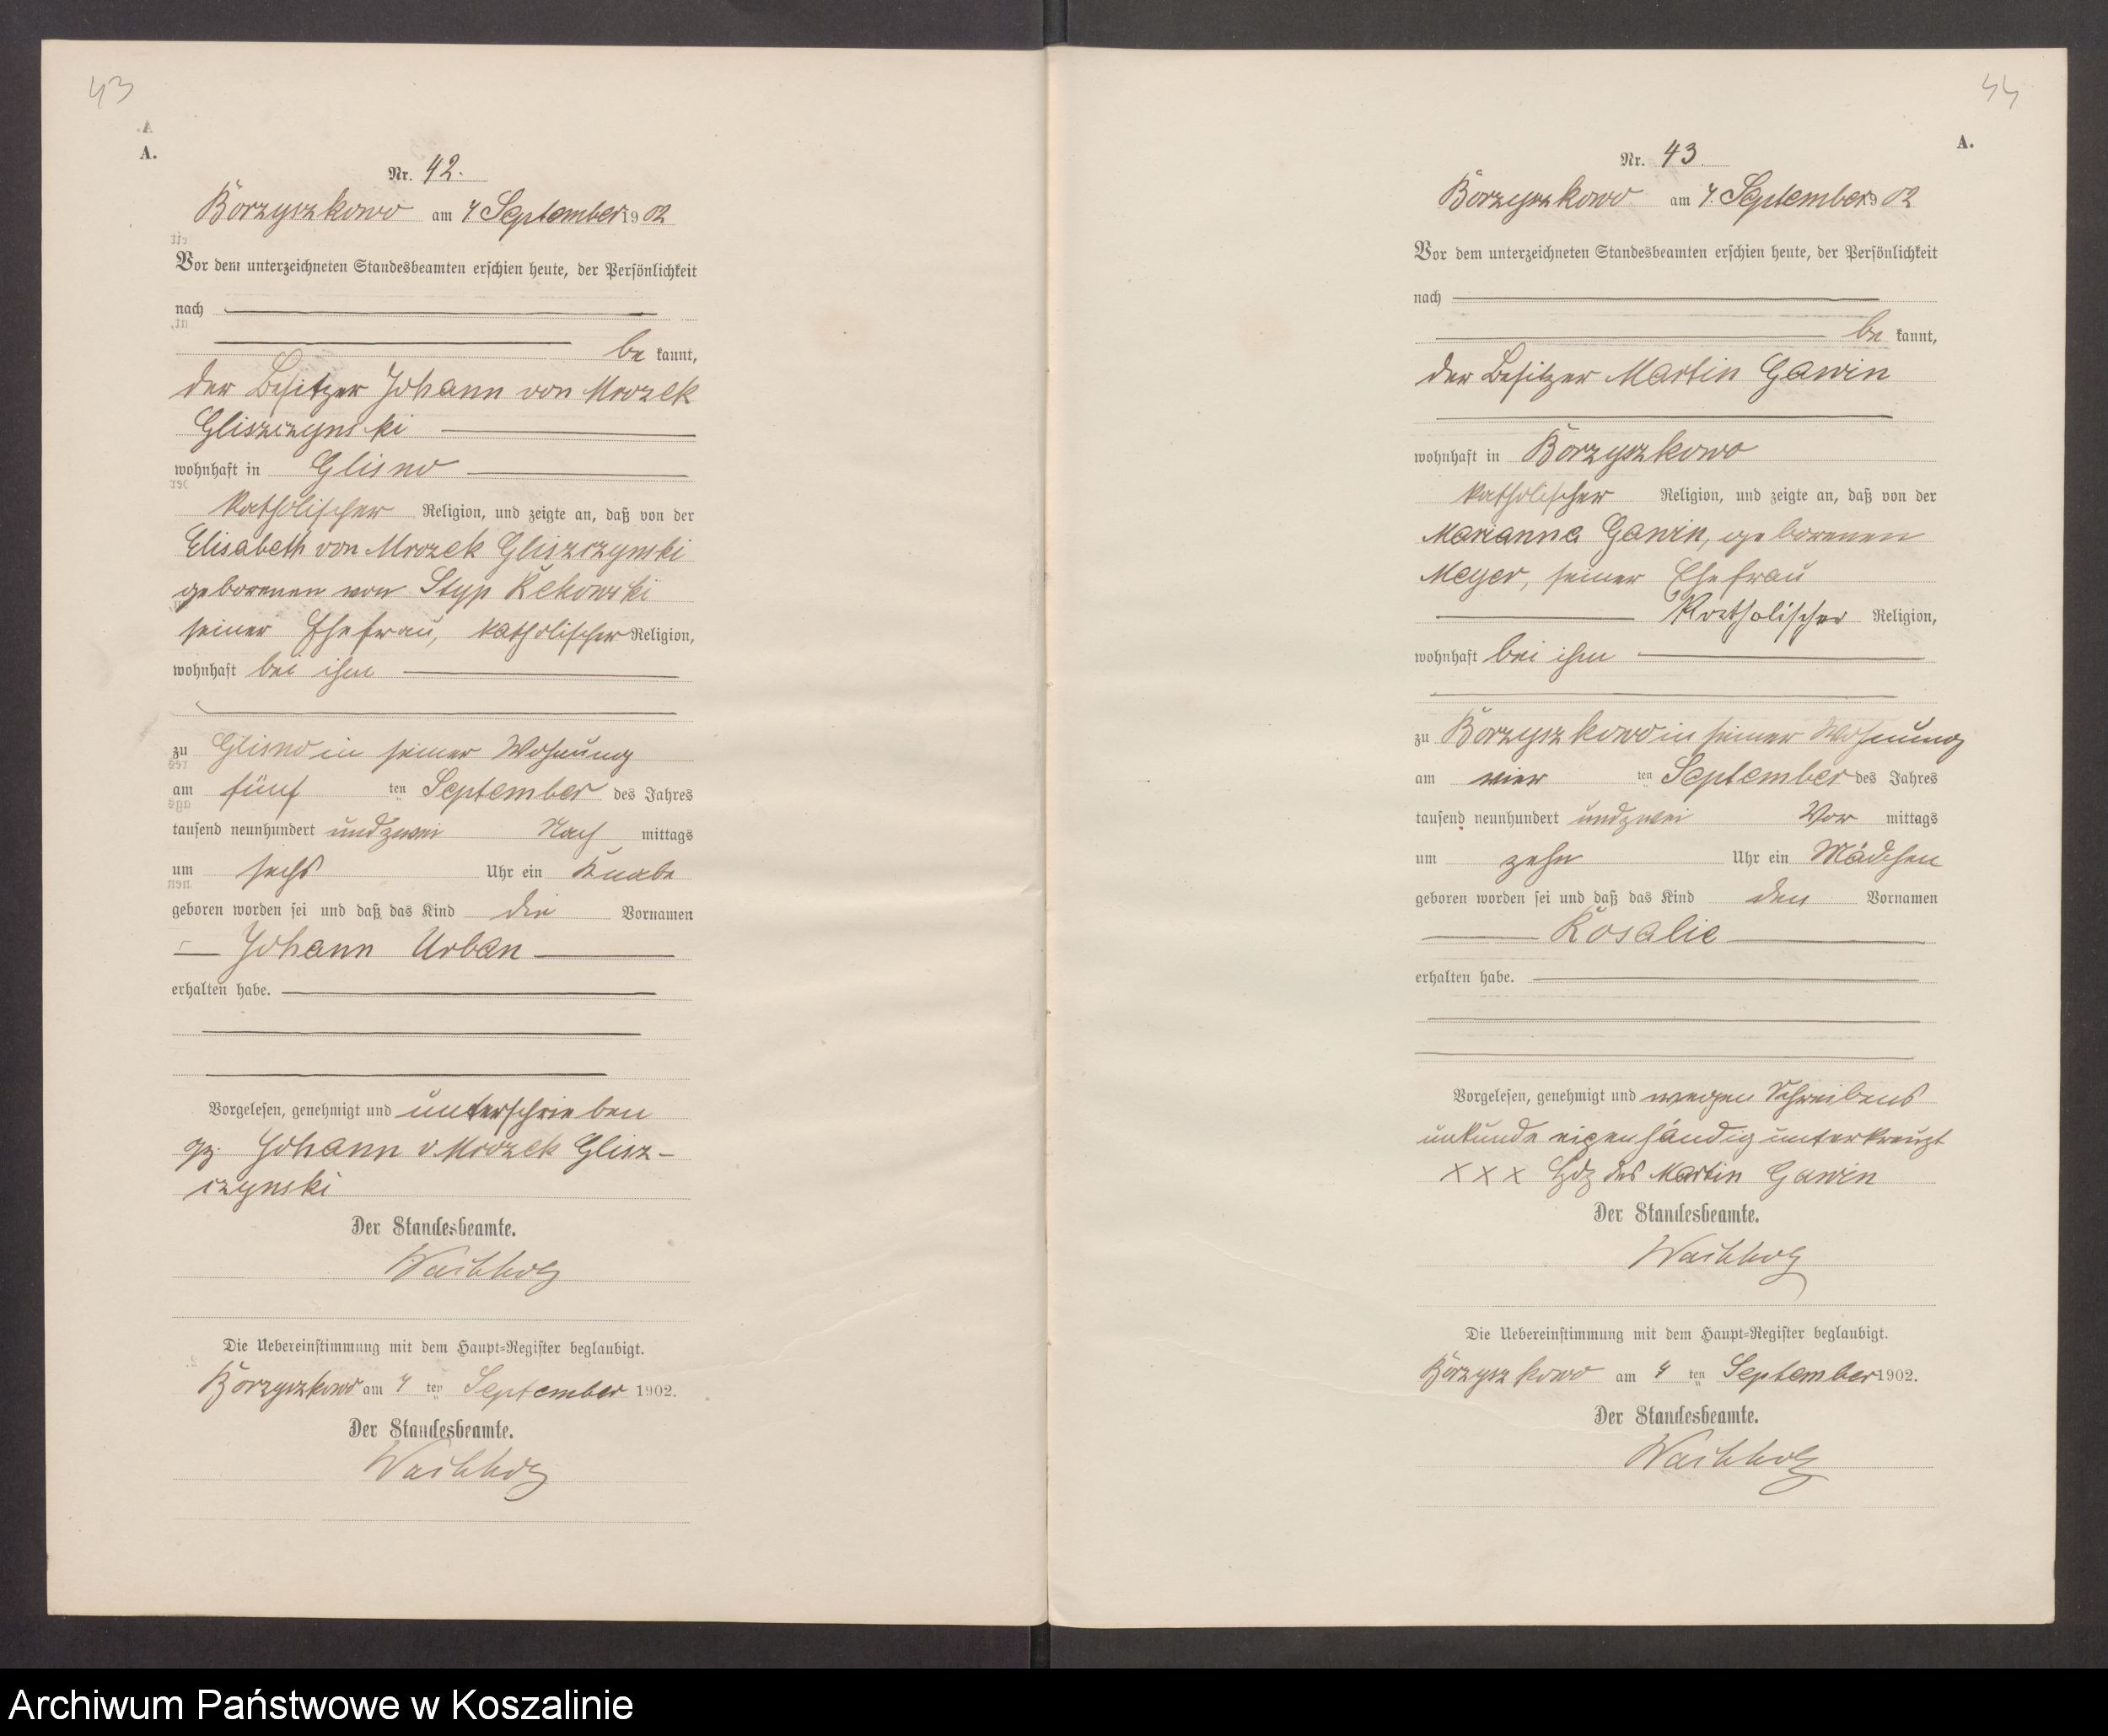 43
A.
Nr. 42.
Borzyszkowo am 7 September 1902
Vor dem unterzeichneten Standesbeamten erschien heute, der Persönlichkeit
nach
be kannt,
der Besitzer Johann von Mrozek
Gliszczynski
wohnhaft in Glisno
katholischer Religion, und zeigte an, daß von der
Elisabeth von Mrozek Gliszczynski
geborenen von Styp Rekowski
seiner Ehefrau, katholischer Religion,
wohnhaft bei ihm
zu Glisno in seiner Wohnung
am fünf ten September des Jahres
tausend neunhundert und zwei Nach mittags
um sechs Uhr ein Knabe
geboren worden sei und daß das Kind die Vornamen
Johann Urban
erhalten habe.
Vorgelesen, genehmigt und unterschrieben
gz. Johann v Mrozek Glisz-
czynski
Der Standesbeamte.
Die Uebereinstimmung mit dem Haupt-Register beglaubigt.
Borzyszkowo am 7 ten September 1902.
Der Standesbeamte.
44
A.
Nr. 43.
Borzyszkowo am 7. September 1902
Vor dem unterzeichneten Standesbeamten erschien heute, der Persönlichkeit
nach
be kannt,
der Besitzer Martin Gawin
wohnhaft in Borzyszkowo
katholischer Religion, und zeigte an, daß von der
Marianna Gawin, geborenen
Meyer, seiner Ehefrau
Katholischer Religion,
wohnhaft bei ihm
zu Borzyszkowo in seiner Wohnung
am vier ten September des Jahres
tausend neunhundert und zwei Vor mittags
um zehn Uhr ein Mädchen
geboren worden sei und daß das Kind den Vornamen
Rosalie
erhalten habe.
Vorgelesen, genehmigt und wegen Schreibens
unkunde eigenhändig unterkreuzt
X X X Hdz des Martin Gawin
Der Standesbeamte.
Die Uebereinstimmung mit dem Haupt-Register beglaubigt.
Borzyszkowo am 7 ten September 1902.
Der Standesbeamte.
Archiwum Państwowe w Koszalinie